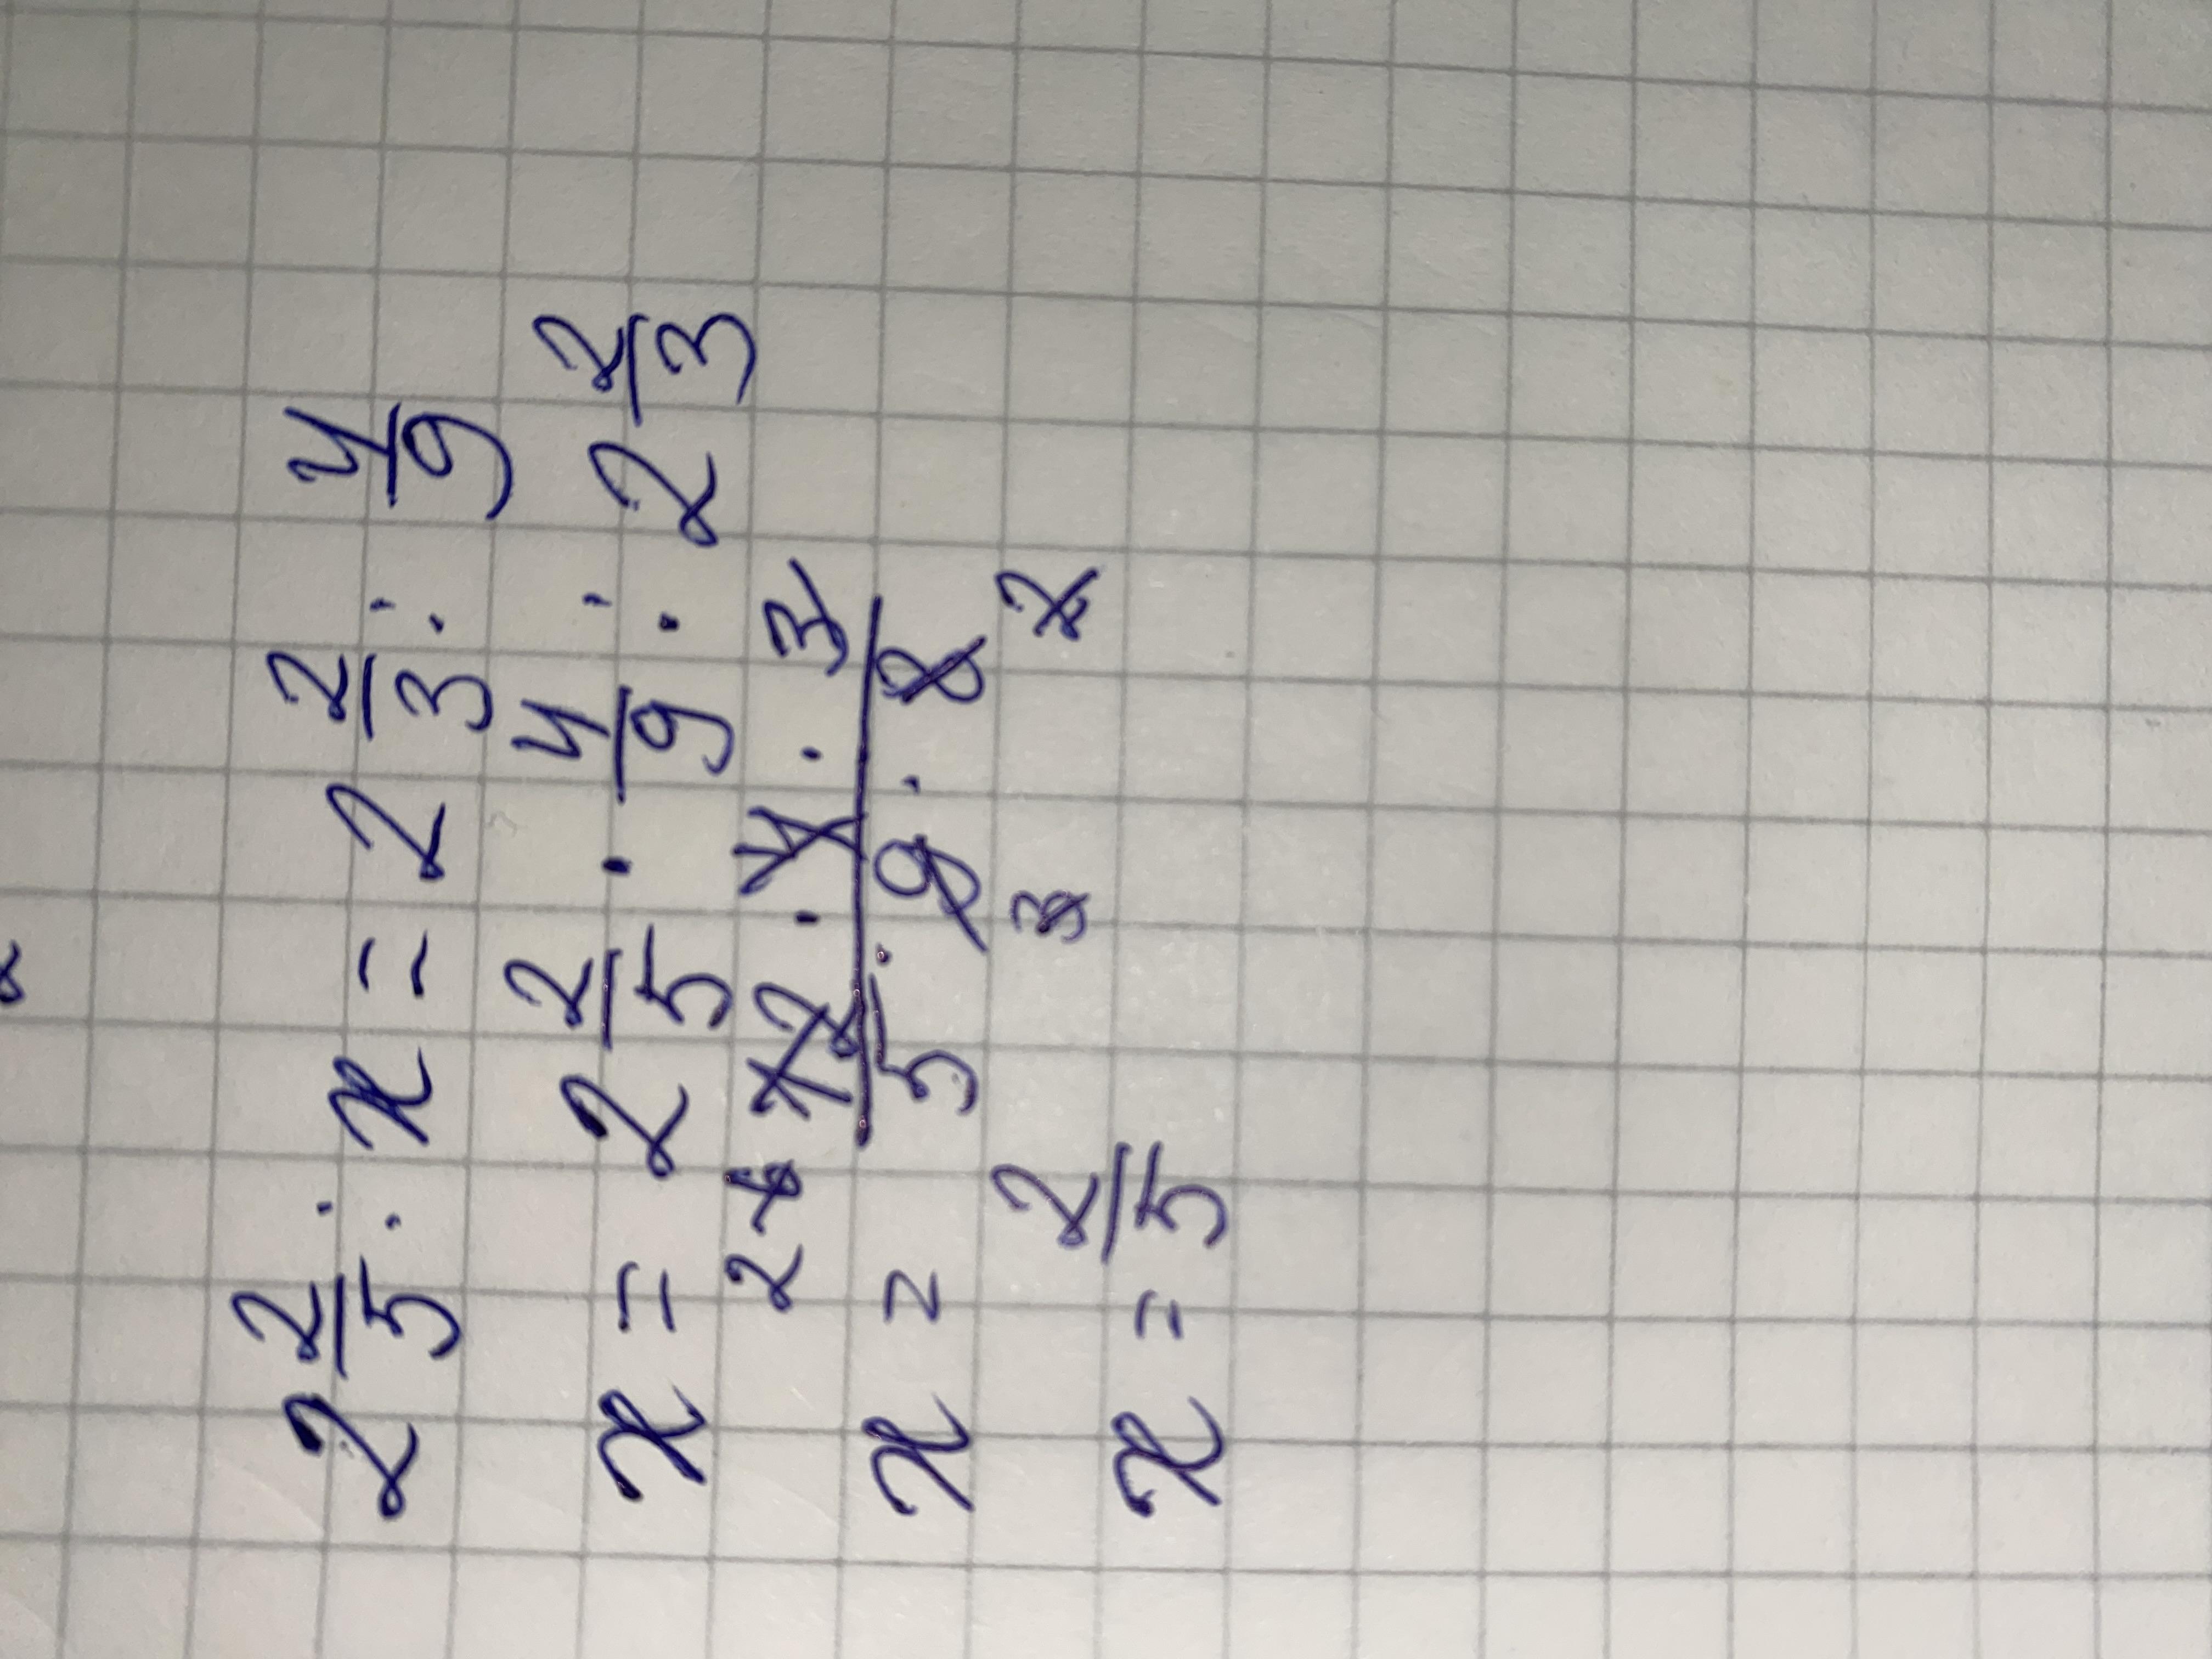 2 2/5 : x = 2 2/3 : 4/9
x = 2 2/5 · 4/9 : 2 2/3
x = 12 · 4 · 3 / 5 · 9 · 8
2 4
3 2
x = 2/5